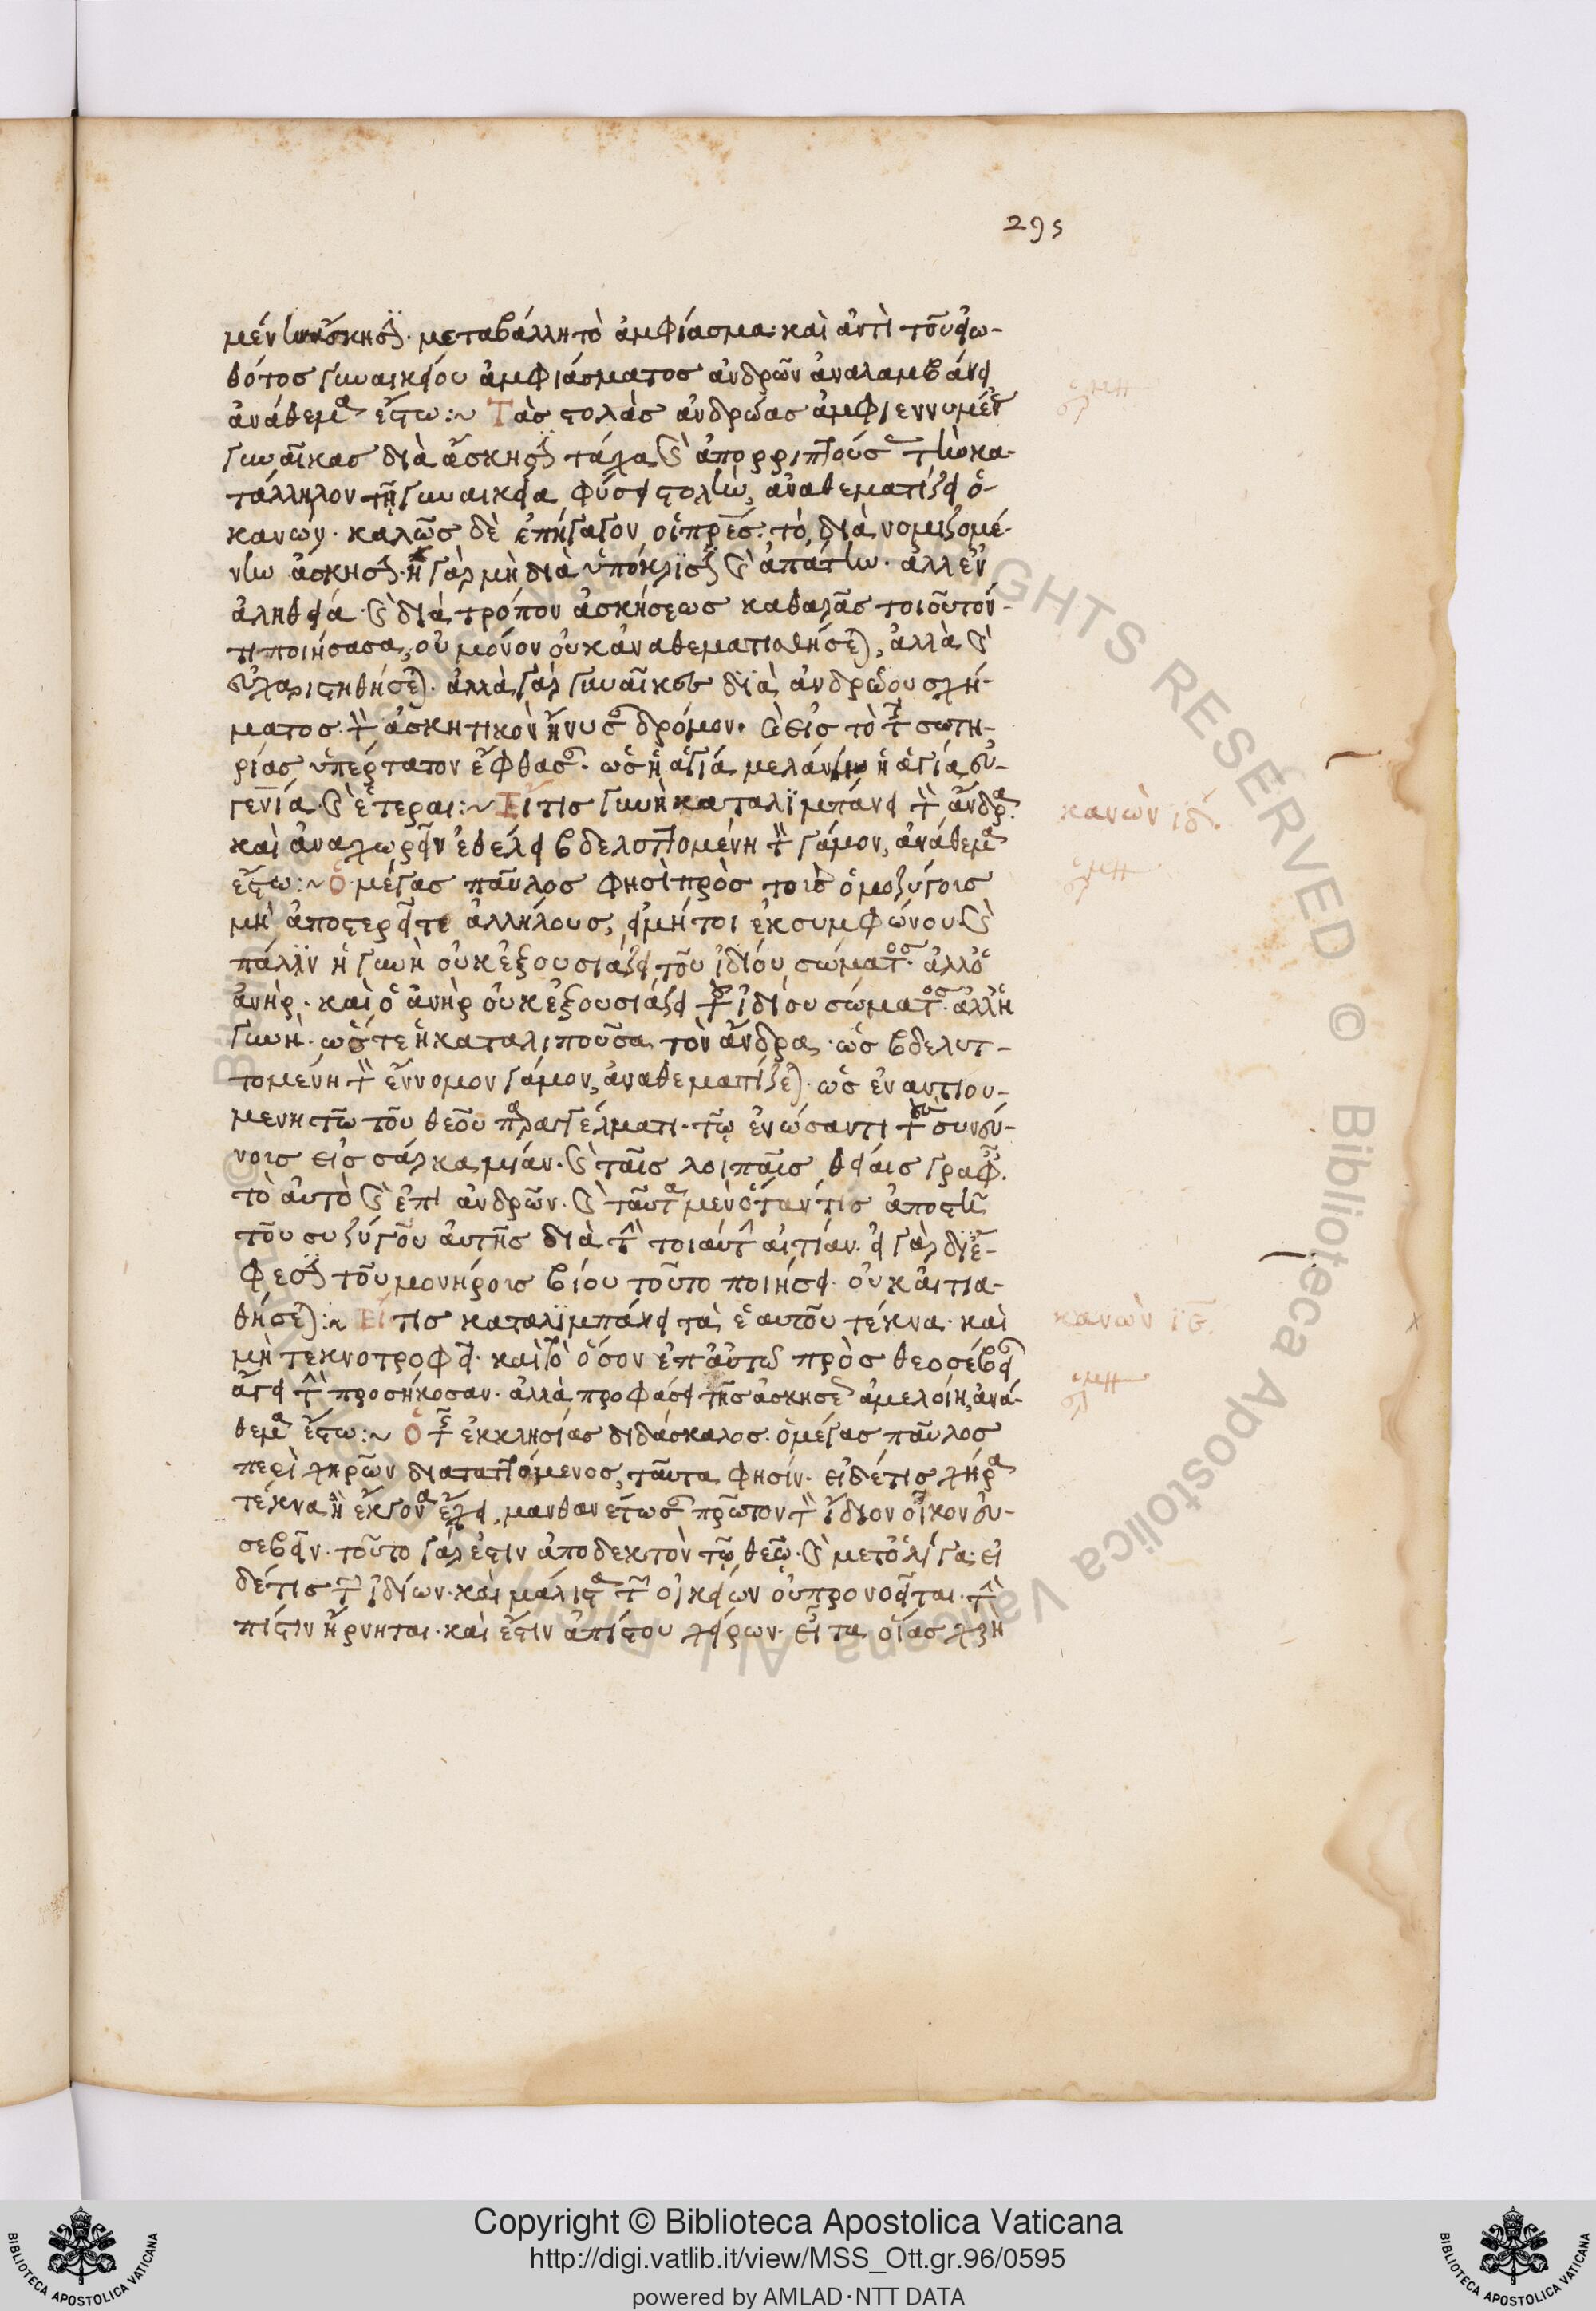 295
μένην ἄσκησιν· μεταβάλλη τὸ ἀμφίασμα· καὶ ἀντὶ τοῦ εἰω-
θότος γυναικείου ἀμφιάσματος ἀνδρῶον ἀναλαμβάνει
ἀνάθεμα ἔστω:~ Τὰς στολὰς ἀνδρώας ἀμφιεννυμένας
γυναῖκας διὰ ἄσκησιν τάχα καὶ ἀπορριπτούσας τὴν κα-
τάλληλον τῆ γυναικεία φύσει στολὴν, ἀναθεματίζει ὁ
κανών· καλῶς δὲ ἐπήγαγον οἱ πρες τὸ, διὰ νομιζομέ-
νην ἄσκησιν· ἡ γὰρ μὴ διὰ ὑπόκρισιν καὶ ἀπάτην· ἀλλ' ἐν
ἀληθεία καὶ διὰ τρόπου ἀσκήσεως καθαρᾶς τοιοῦτόν
τι ποιήσασα, οὐ μόνον οὐκ ἀναθεματισθήσεται, ἀλλὰ καὶ
εὐχαριστηθήσεται. ἀλλὰ γὰρ γυναῖκες διὰ ἀνδρώου σχή-
ματος τὸν ἀσκητικὸν ἤνυσαν δρόμον· καὶ εἰς τὸ τῆς σωτη-
ρίας ὑπέρτατον ἔφθασαν· ὡς ἡ ἁγία μελάνη ἡ ἁγία εὐ-
γενία· καὶ ἕτεραι:~ Εἴ τις γυνὴ καταλιμπάνει τὸν ἄνδρα
κανὼν ιδ.
καὶ ἀναχωρεῖν ἐθέλει βδελυττομένη τὸν γάμον, ἀνάθεμα
ἔστω:~ Ὁ μέγας παῦλος φησὶ πρὸς τοὺς ὁμοζύγους
μὴ ἀποστερεῖτε ἀλλήλους, εἰ μή τοι ἐκ συμφώνου καὶ
πάλιν ἡ γυνὴ οὐκ ἐξουσιάζει τοῦ ἰδίου σώματος· ἀλλ' ὁ
ἀνήρ· καὶ ὁ ἀνὴρ οὐκ ἐξουσιάζει τοῦ ἰδίου σώματος· ἀλλ' ἡ
γυνή· ὥστε ἡ καταλιποῦσα τὸν ἄνδρα ὡς βδελυτ-
τομένη τὸν ἔννομον γάμον, ἀναθεματίζεται· ὡς ἐναντιου-
μενη τῶ τοῦ θεοῦ παραγγέλματι· τῷ ἑνώσαντι τοὺς συνεύ-
νους εἰς σάρκα μίαν· καὶ ταῖς λοιπαῖς θείαις γραφαῖς.
τὸ αὐτὸ καὶ ἐπὶ ἀνδρῶν· καὶ ταῦτα μὲν ὅταν τις ἀποστῆ
τοῦ συζύγου αὐτῆς διὰ τὴν τοιαύτην αἰτίαν· εἰ γὰρ δι' ἔ-
φεσιν τοῦ μονήρους βίου τοῦτο ποιήσει· οὐκ αἰτια-
θήσεται:~ Εἴ τις καταλιμπάνει τὰ ἑαυτοῦ τέκνα· καὶ
κανὼν ιε.
μὴ τεκνοτροφεῖ· καὶ τὸ ὅσον ἐπ' αὐτῷ πρὸς θεοσέβειαν
ἄγει τὴν προσήκουσαν· ἀλλὰ προφάσει τῆς ἀσκήσεως ἀμελοίη, ἀνά-
θεμα ἔστω:~ Ὁ τῆς ἐκκλησίας διδάσκαλος ὁ μέγας παῦλος
περὶ χηρῶν διαταττόμενος, ταῦτα φησίν· εἰ δέ τις χήρα
τέκνα ἢ ἔκγονα ἔχει, μανθανέτωσαν πρῶτον τὸν ἴδιον οἶκον εὐ-
σεβεῖν· τοῦτο γάρ ἐστιν ἀποδεκτὸν τῷ θεῷ· καὶ μετ' ὀλίγα· εἰ
δέ τις τῶν ἰδίων καὶ μάλιστα τῶν οἰκείων οὐ προνοεῖται· τὴν
πίστιν ἤρνηται· καὶ ἔστιν ἀπίστου χείρων· εἶτα οἵας χρὴ
Copyright © Biblioteca Apostolica Vaticana
http://digi.vatlib.it/view/MSS_Ott.gr.96/0595
powered by AMLAD·NTT DATA